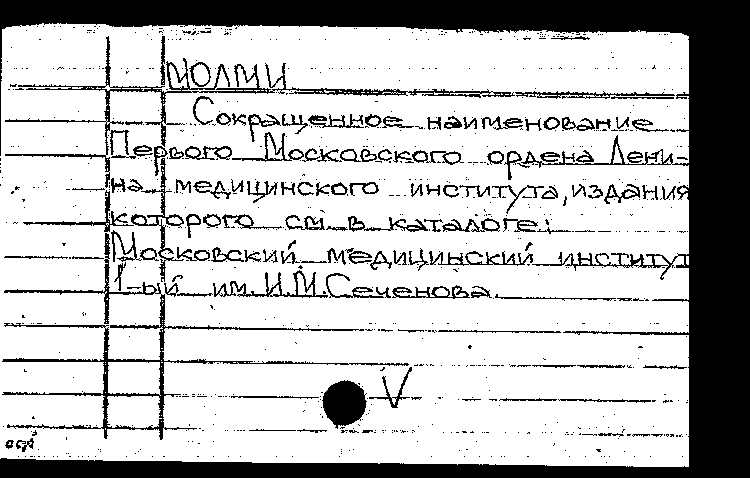 МОЛМИ
Сокращенное наименование
Первого Московского ордена Лени-
на медицинского института, издания
которого см. в каталоге:
Московский медицинский институт
1-ый им. И.М.Сеченова.
V